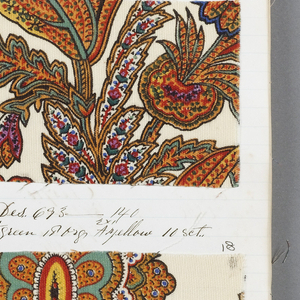 Des 693 141
green 18 org & yellow 10 set.
18